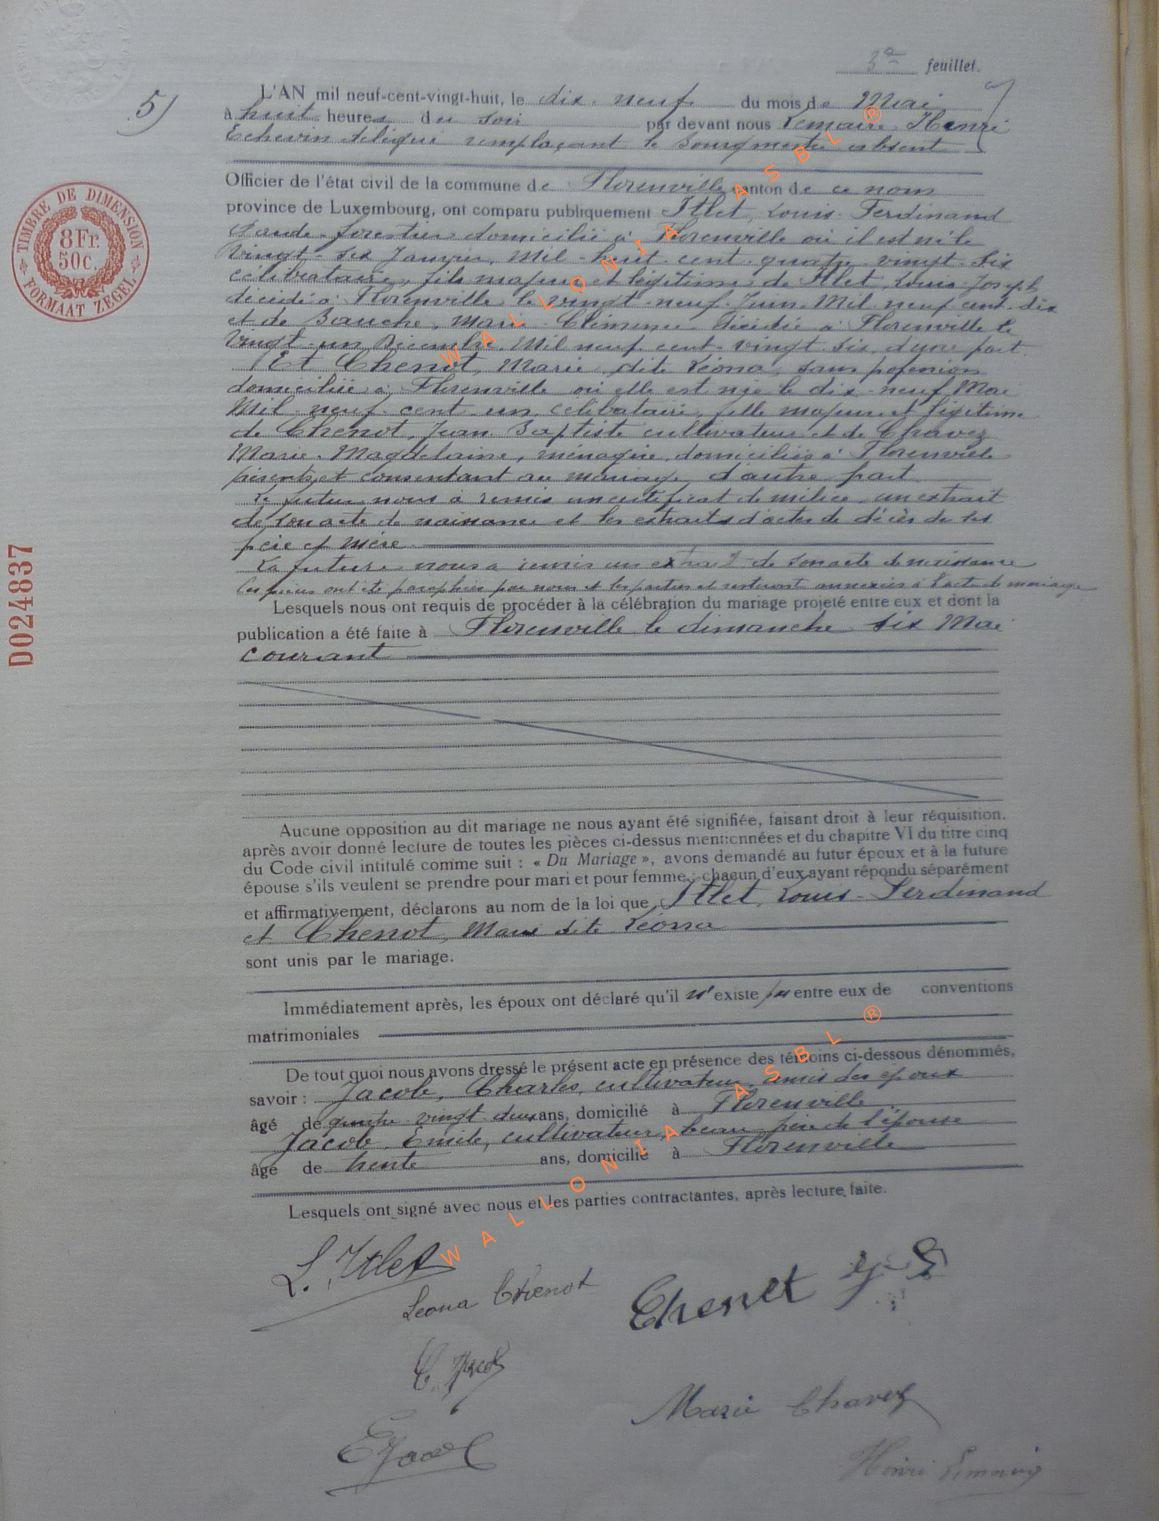 3e feuillet.
5)
L'AN mil neuf-cent-vingt-huit, le dix-neuf du mois de Mai
à huit heures du soir par devant nous Lemaire Henri
Echevin délégué remplaçant le bourgmestre absent
Officier de l'état civil de la commune de Florenville canton de ce nom
province de Luxembourg, ont comparu publiquement Itlet, Louis-Ferdinand
Garde-forestier domicilié à Florenville où il est né le
Vingt-six Janvier, Mil-huit-cent-quatre-vingt-six
célibataire, fils majeur et légitime de Itlet Louis-Joseph
décédé à Florenville le vingt-neuf Juin Mil neuf cent dix
et de Bauche, Marie-Clémence décédée à Florenville le
Vingt-un Décembre Mil neuf cent-vingt-six, d'une part.
Et Chenot, Marie dite Léona, sans profession
domiciliée à Florenville où elle est née le dix-neuf Mai
Mil-neuf-cent-un, célibataire, fille majeure et légitime
de Chenot, Jean-Baptiste cultivateur et de Chavez
Marie-Magdelaine, ménagère, domiciliés à Florenville
présents et consentant au mariage, d'autre part.
Le futur nous a remis un certificat de milice, un extrait
de son acte de naissance et les extraits d'actes de décès de ses
père et mère
La future nous a remis un extrait de son acte de naissance
Ces pièces ont été paraphées par nous et les parties et resteront annexées à l'acte de mariage
Lesquels nous ont requis de procéder à la célébration du mariage projeté entre eux et dont la
publication a été faite à Florenville le dimanche six Mai
courant
Aucune opposition au dit mariage ne nous ayant été signifiée, faisant droit à leur réquisition.
après avoir donné lecture de toutes les pièces ci-dessus mentionnées et du chapitre VI du titre cinq
du Code civil intitulé comme suit : « Du Mariage », avons demandé au futur époux et à la future
épouse s'ils veulent se prendre pour mari et pour femme ; chacun d'eux ayant répondu séparément
et affirmativement, déclarons au nom de la loi que Itlet, Louis-Ferdinand
et Chenot, Marie dite Léona
sont unis par le mariage.
Immédiatement après, les époux ont déclaré qu'il n'existe pas entre eux de conventions
matrimoniales
De tout quoi nous avons dressé le présent acte en présence des témoins ci-dessous dénommés,
savoir : Jacob, Charles, cultivateur, amis des époux
âgé de quatre vingt deux ans, domicilié à Florenville
Jacob Emile, cultivateur, beau père de l'épouse
âgé de trente ans, domicilié à Florenville
Lesquels ont signé avec nous et les parties contractantes, après lecture faite.
L. Itlet
Leona Chenot
Chenot J-B
C. Jacob
Marie Chavez
E Jacob
Henri Lemaire
TIMBRE DE DIMENSION
8Fr.
50c.
FORMAAT ZEGEL
D024837
WALLONIA ASBL ®
WALLONIA ASBL ®